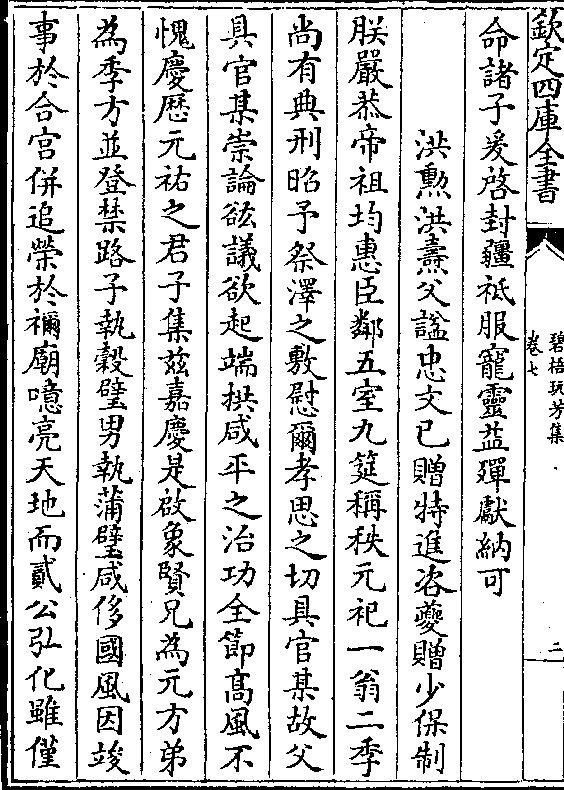 欽定四庫全書
碧梧玩芳集
卷七
二
命諸子爰啓封疆祗服寵靈益殫獻納可
洪勲洪燾父諡忠文已贈特進咨夔贈少保制
朕嚴恭帝祖均惠臣鄰五室九筵稱秩元祀一翁二季
尚有典刑昭予祭澤之敷慰爾孝思之切具官某故父
具官某崇論竑議欲起端拱咸平之治功全節髙風不
愧慶歴元祐之君子集兹嘉慶是啟象賢兄為元方弟
為季方並登禁路子執穀璧男執蒲璧咸侈國風因竣
事於合宮併追榮於禰廟噫亮天地而貳公弘化雖僅